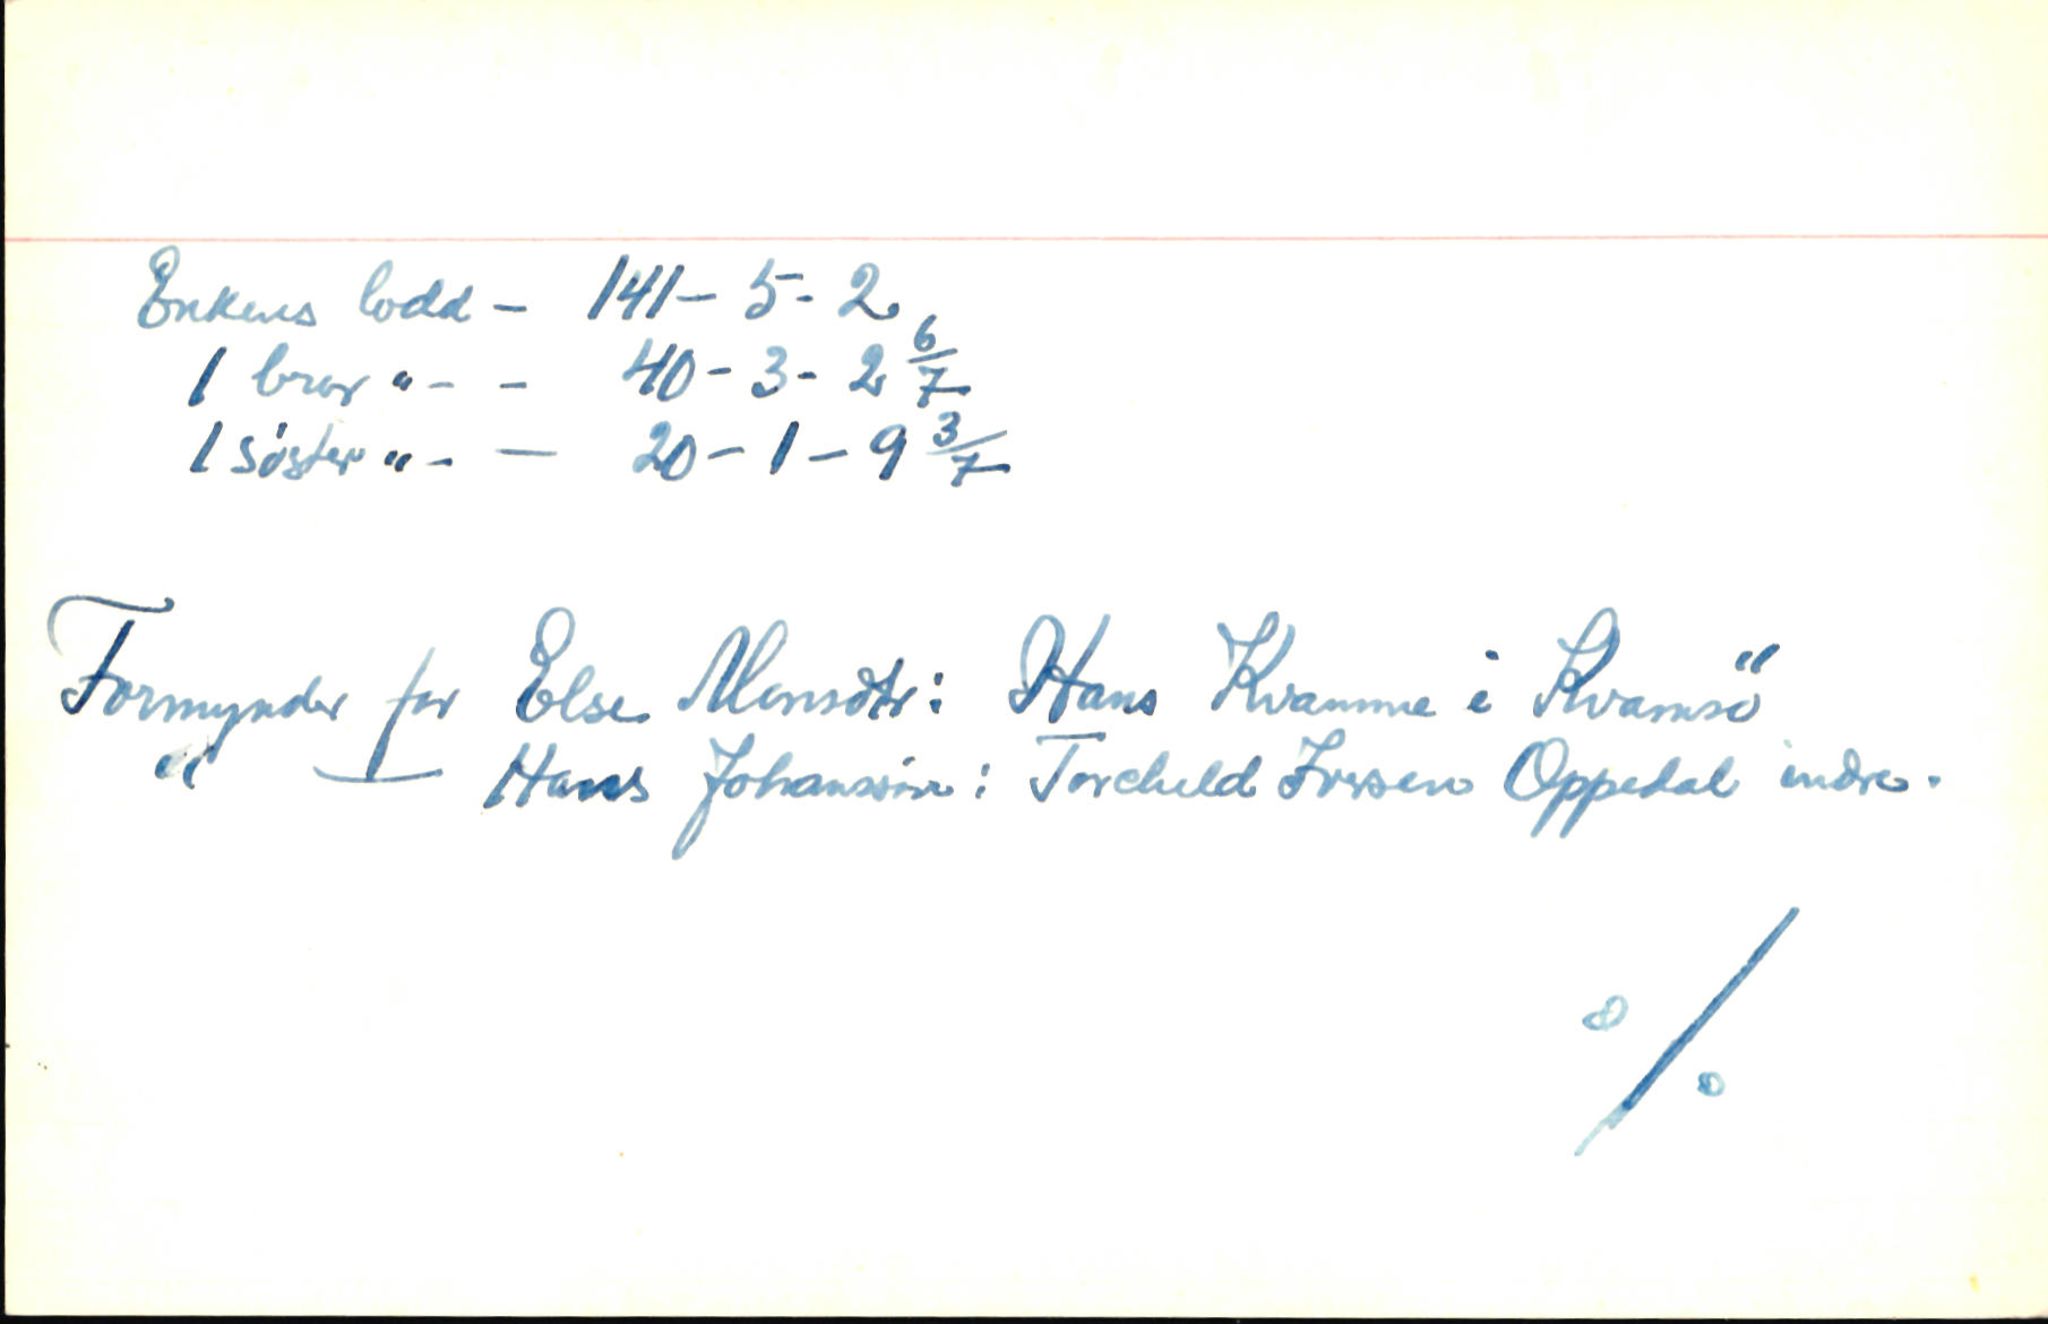 Enkens lodd - 141 - 5 - 2
1 bror " - - 40 - 3 - 2 6/7
1 søster " - — 20 - 1 - 9 3/7
Formynder for Else Monsdtr: Hans Kvamme i Kvamsö
" — Hans Johanssön: Torchild Iversen Oppedal indre.
%